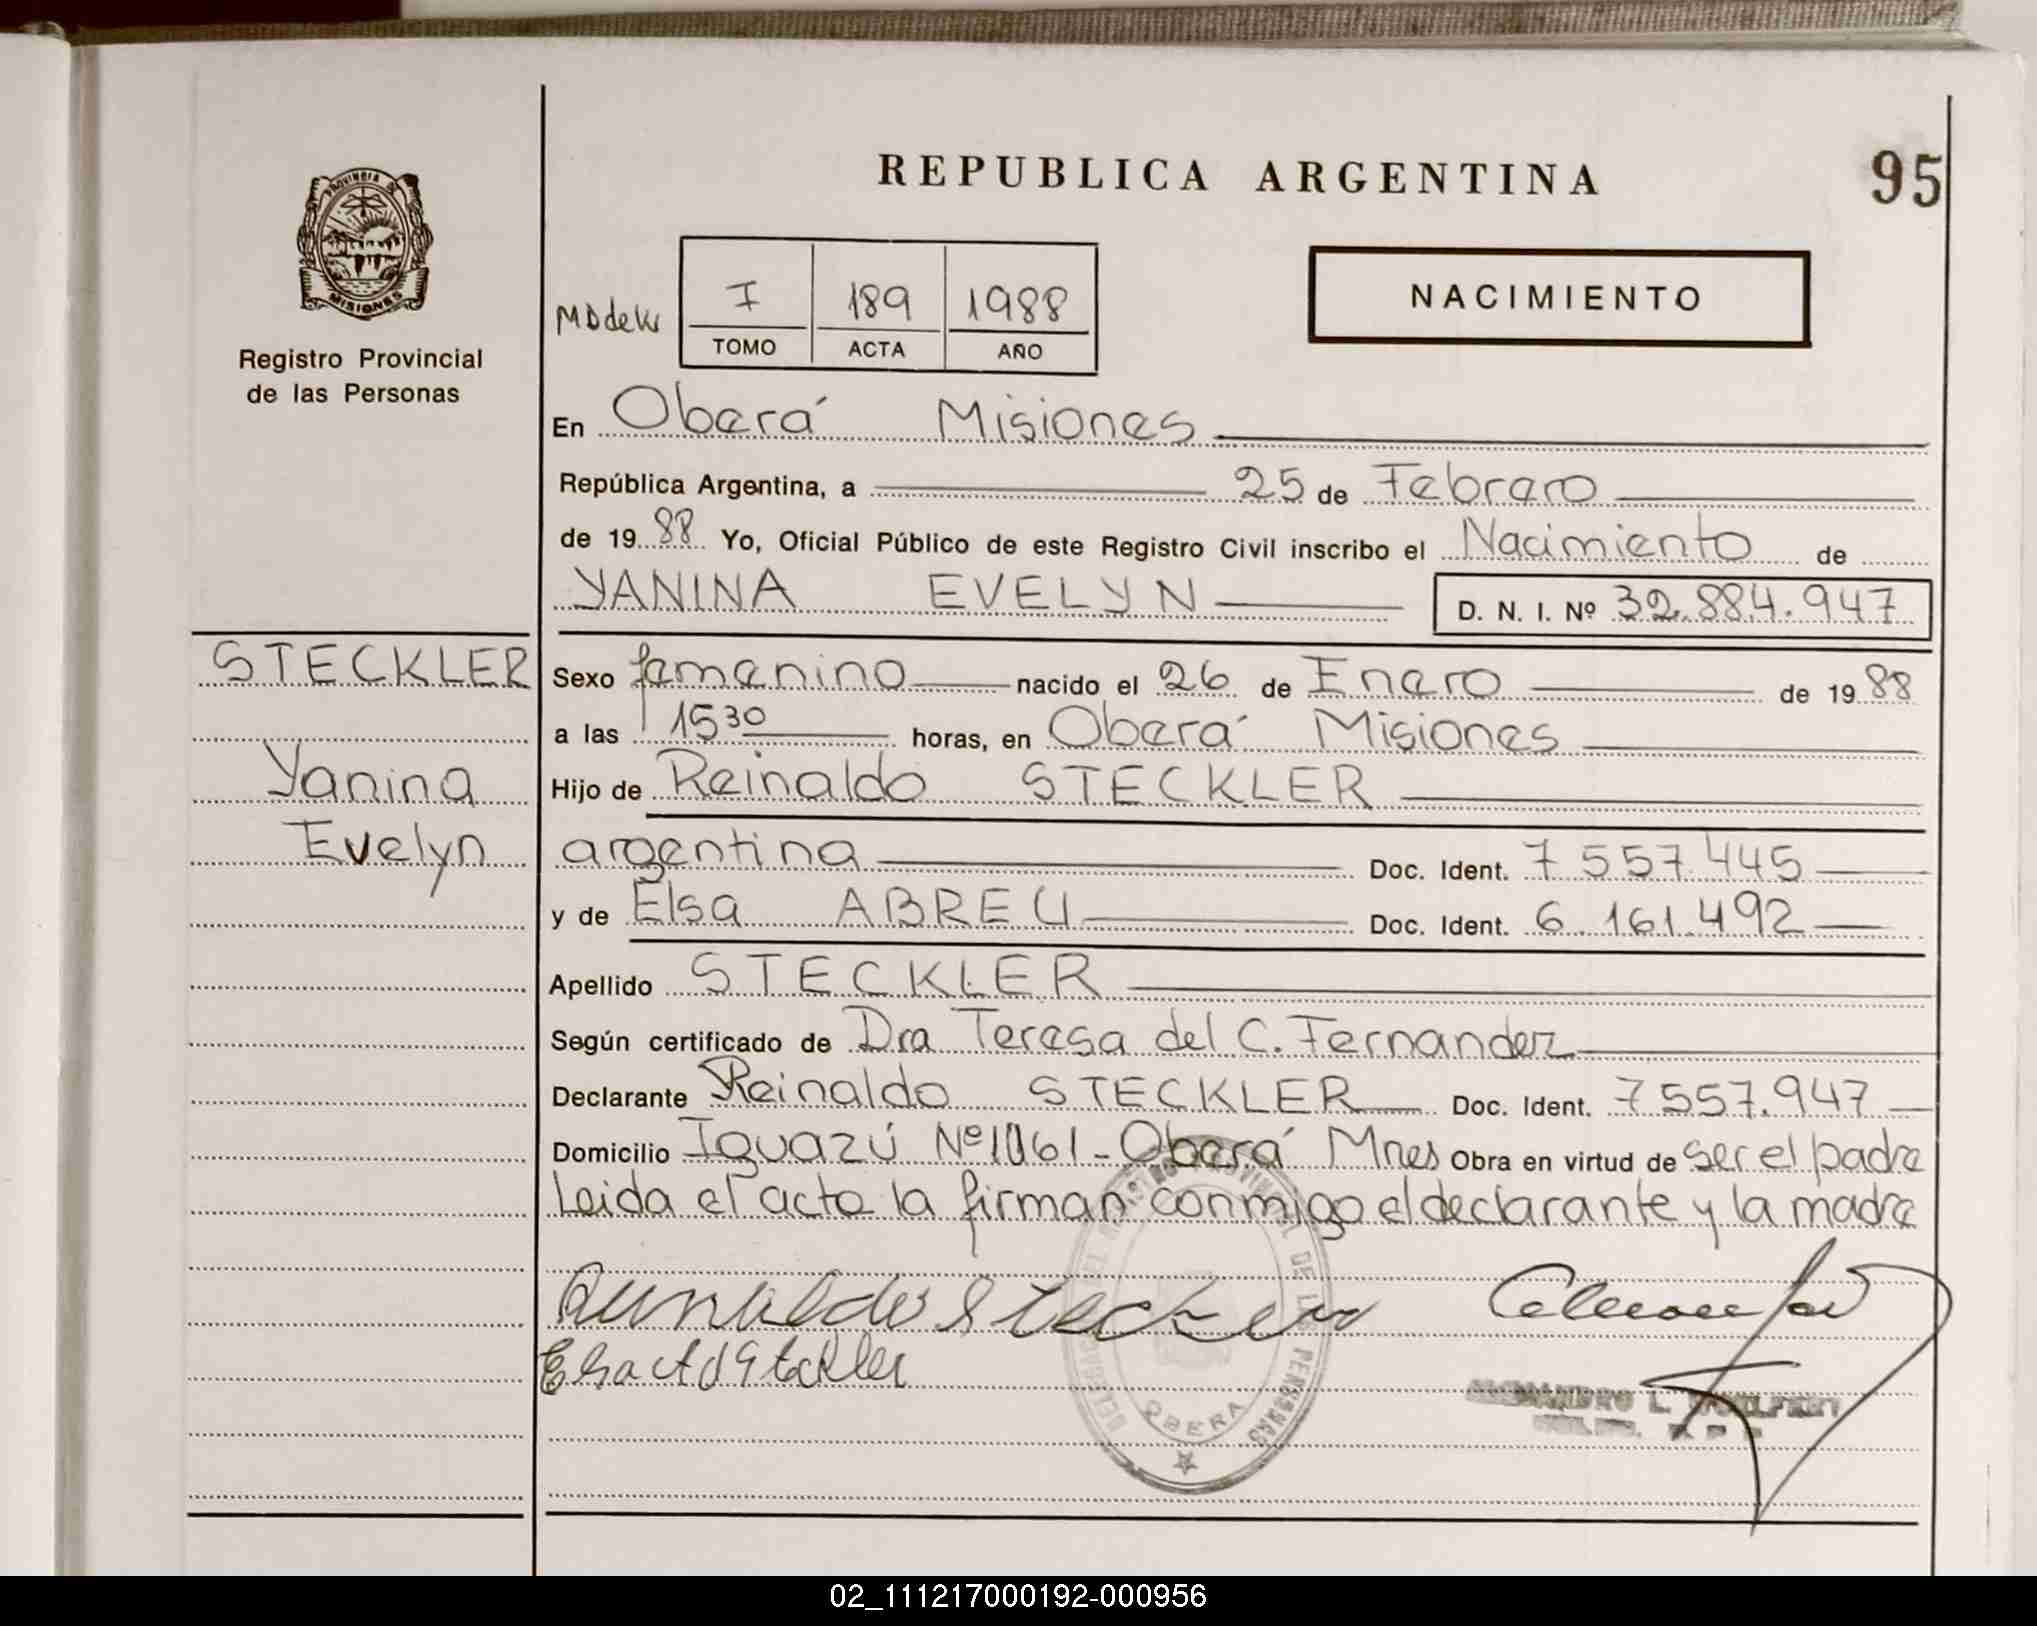 REPUBLICA ARGENTINA
95
PROVINCIA DE
MISIONES
Registro Provincial
de las Personas
I 189 1988
TOMO ACTA AÑO
NACIMIENTO
En Oberá Misiones
República Argentina, a 25 de Febrero
de 1988 Yo, Oficial Público de este Registro Civil inscribo el Nacimiento de
YANINA EVELYN D. N. I. Nº 32.884.947
STECKLER
Yanina
Evelyn
Sexo femenino nacido el 26 de Enero de 1988
a las 15 30 horas, en Oberá Misiones
Hijo de Reinaldo STECKLER
argentina Doc. Ident. 7 557.445
y de Elsa ABREU Doc. Ident. 6.161.492
Apellido STECKLER
Según certificado de Dra Teresa del C. Fernandez
Declarante Reinaldo STECKLER Doc. Ident. 7557.947
Domicilio Iguazú Nº 1061 - Oberá Mnes Obra en virtud de ser el padre
Leida el acta la firman conmigo el declarante y la madre
DELEGACION DEL REGISTRO PROVINCIAL DE LAS PERSONAS
OBERA
02_111217000192-000956